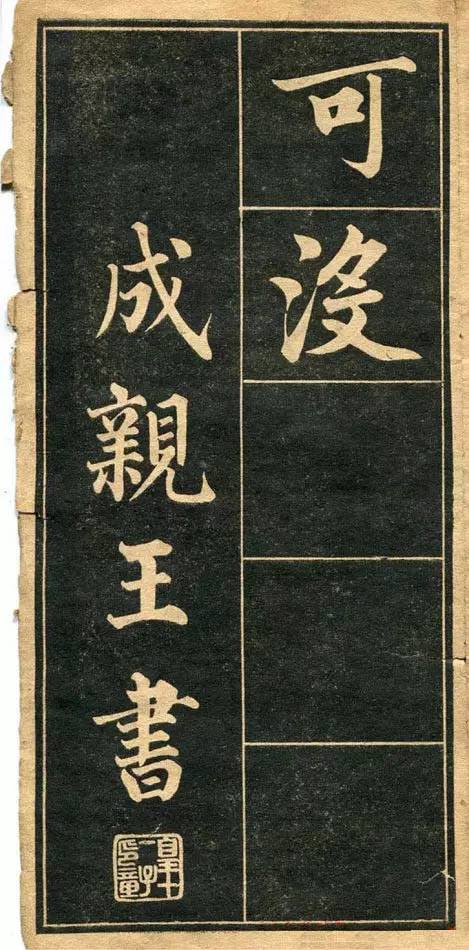 可没
成親王書